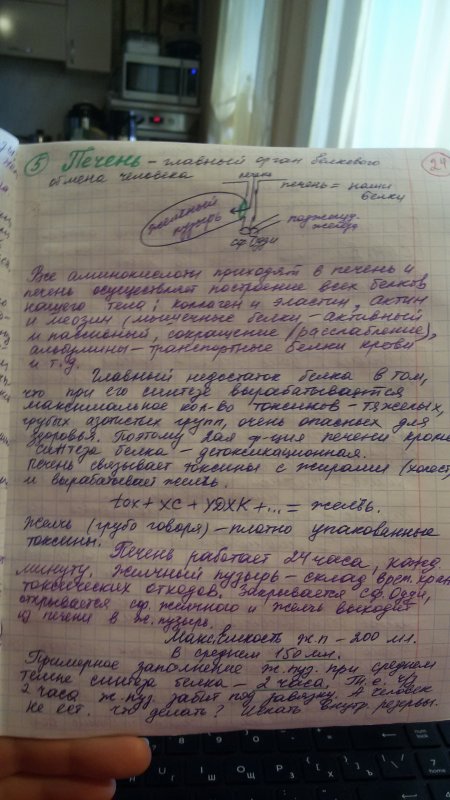 ⑤ Печень - главный орган белкового 24
обмена человека
печень
печень = наши
белки
желчный
пузырь
поджелуд.
железа
сф. Одди
Все аминокислоты приходят в печень и
печень осуществляет построение всех белков
нашего тела: коллаген и эластин, актин
и меозин (мышечные белки - активный
и пассивный, сокращение/расслабление),
альбумины - транспортные белки крови
и т.д.
Главный недостаток белка в том,
что при его синтезе вырабатывается
максимальное кол-во токсинов - тяжелых,
грубых азотистых групп, очень опасных для
здоровья. Поэтому 2ая ф-ция печени кроме
синтеза белка - детоксикационная.
Печень связывает токсины с жирами (холест)
и вырабатывает желчь.
tox + ХС + УДХК + ... = желчь.
Желчь (грубо говоря) - плотно упакованные
токсины.
Печень работает 24 часа, кажд
минуту. Желчный пузырь - склад врем. хран
токсических отходов. Закрывается сф. Одди,
открывается сф. желчного и желчь выходит
из печени в ж. пузырь.
Макс. ёмкость ж.п - 200 мл.
В среднем 150 мл.
Примерное заполнение ж. пуз. при среднем
темпе синтеза белка - 2 часа. Т.е. ч/з
2 часа ж. пуз. забит под завязку. А человек
не ест. Что делать? Искать внутр. резервы.